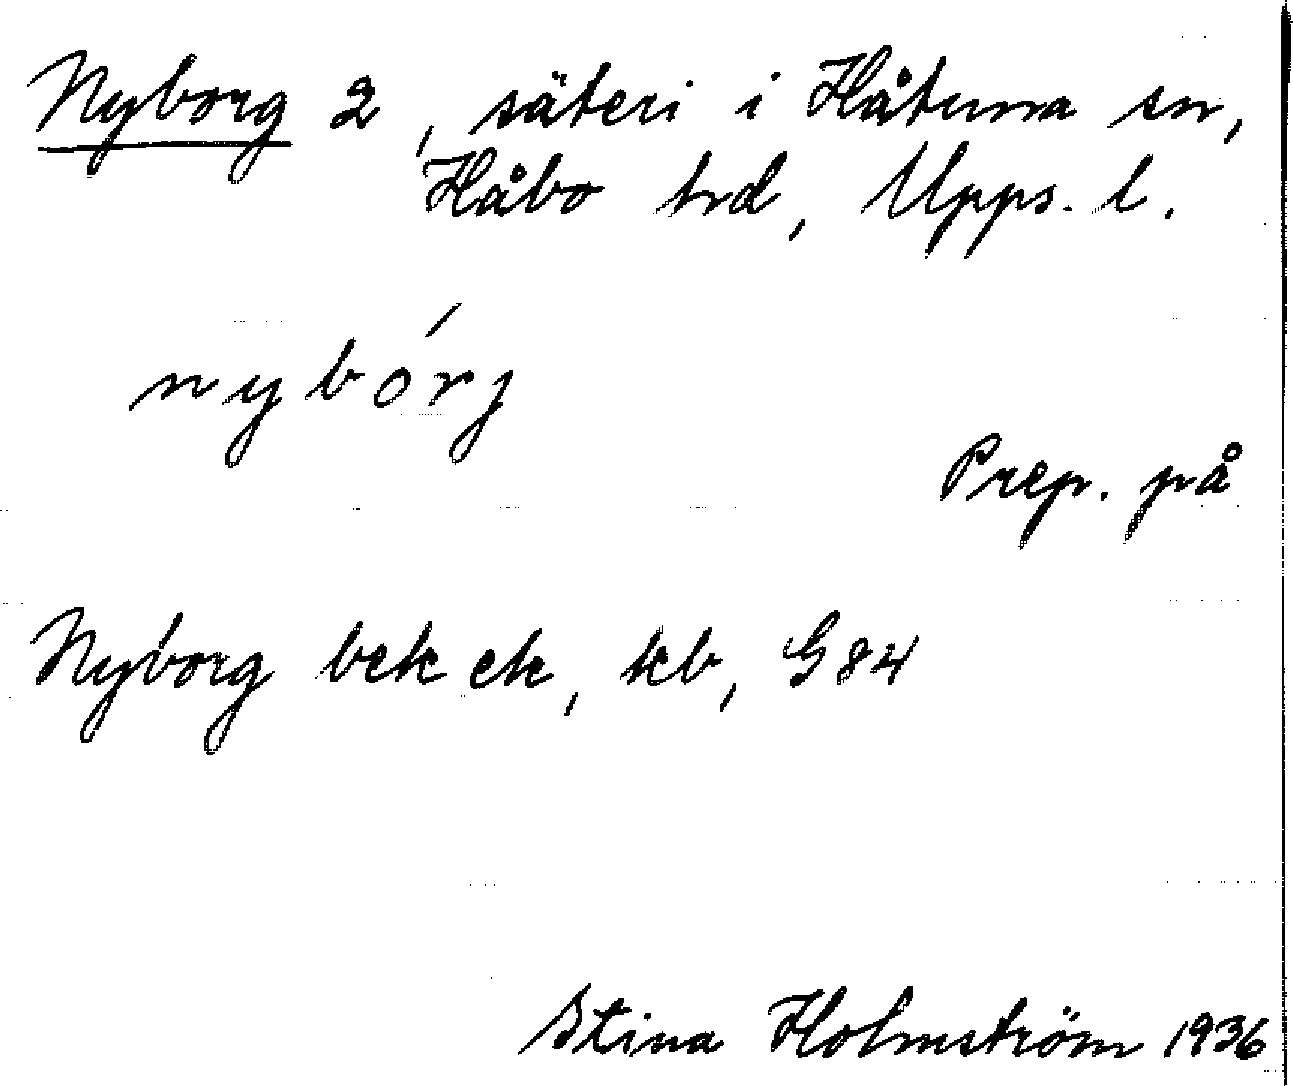 Nyborg 2, säteri i Håtuna sn,
Håbo hrd, Upps. l.
nybórj
Prep. på
Nyborg bek ek, kb, G84
Stina Holmström 1936